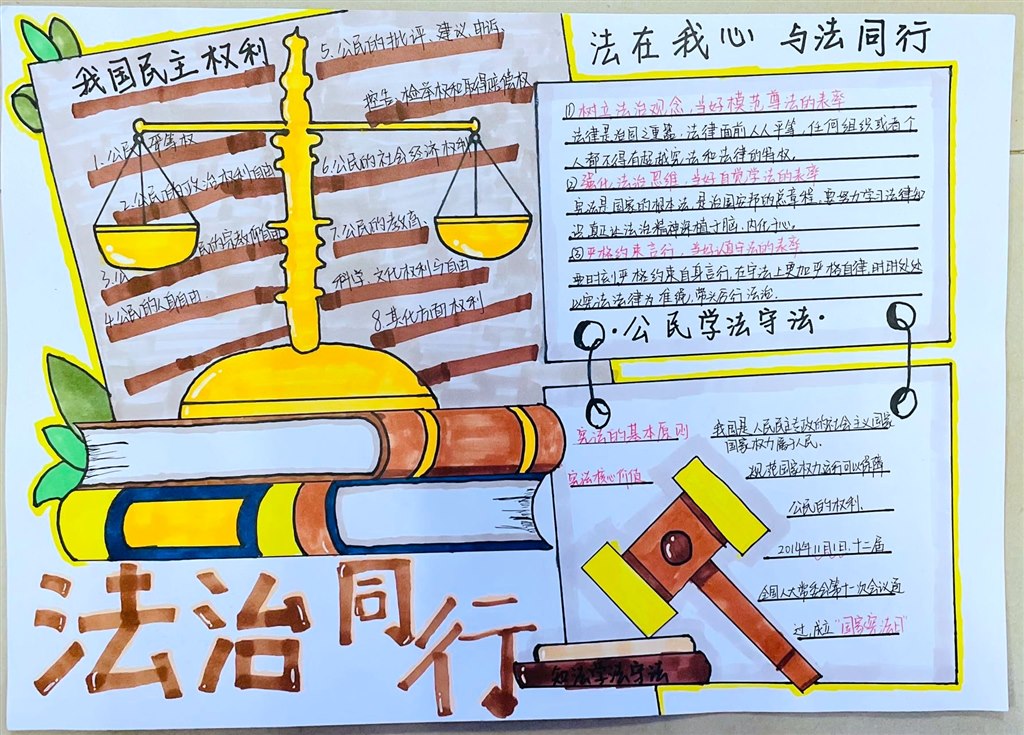 我国民主权利
1.公民平等权
2.公民的政治权利自由
3.公民的宗教信仰自由
4.公民的人身自由.
5.公民的批评、建议、申诉、
控告、检举权和取得赔偿权
6.公民的社会经济权利
7.公民的教育、
科学、文化权利与自由
8.其他方面权利
法治同行
法在我心 与法同行
①树立法治观念,当好模范尊法的表率
法律是治国之重器.法律面前人人平等,任何组织或者个
人都不得有超越宪法和法律的特权。
②强化法治思维,当好自觉学法的表率
宪法是国家的根本法,是治国安邦的总章程,要努力学习法律知
识真让法治精神深植于脑、内化于心。
③严格约束言行,当好遵守法的表率
要时刻严格约束自身言行,在守法上更加严格自律,时时处处
以宪法法律为准绳,带头厉行法治.
·公民学法守法·
宪法的基本原则
宪法核心价值
我国是人民民主专政的社会主义国家
国家权力属于人民.
规范国家权力运行可以保障
公民的权利.
2014年11月1日.十二届
全国人大常委会第十一次会议通
过,成立"国家宪法日"
知法学法守法